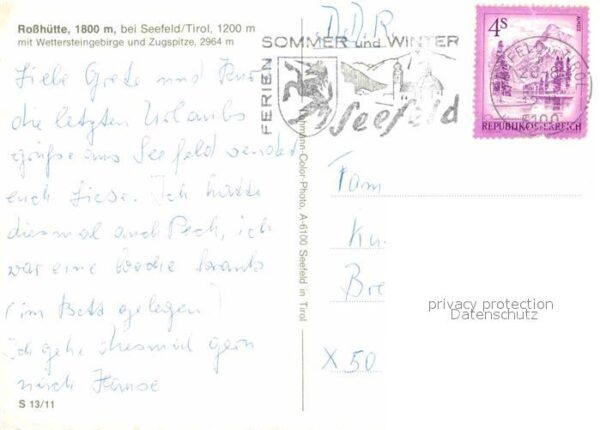 Roßhütte, 1800 m, bei Seefeld/Tirol, 1200 m
mit Wettersteingebirge und Zugspitze, 2964 m
Liebe Grete und
die letzten Urlaubs
grüße aus Seefeld sendet
euch Liese. Ich hatte
diesmal auch Pech, ich
war eine Woche krank
(im Bett gelegen)
Ich gehe diesmal gern
nach Hause
S 13/11
-Color-Photo, A-6100 Seefeld in Tirol
DDR
FERIEN
SOMMER und WINTER
Seefeld
4S
REPUBLIK ÖSTERREICH
6100
Fam
Ku.
Bre
X 50
privacy protection
Datenschutz